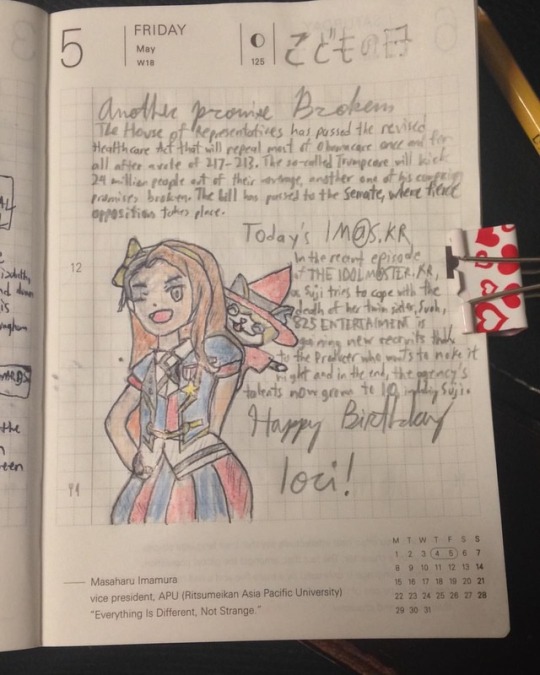 5
FRIDAY
May
W18
125
こどもの日
Another promise Broken
The House of Representatives has passed the revised
Healthcare Act that will repeal most of Obamacare once and for
all after a vote of 217-213. The so-called Trumpcare will kick
24 million people out of their coverage, another one of his campaign
promises broken. The bill has passed to the Senate, where fierce
opposition takes place.
Today's IM@S.KR
In the recent episode
of THE IDOLM@STER.KR,
a Suji tries to cope with the
death of her twin sister,
825 ENTERTAIMENT is
gaining new recruits thanks
to the Producer who wants to make it
right and in the end, the agency's
talents now grown to 10 Suji.
Happy Birthday
loci!
12
M T W T F S S
1 2 3 4 5 6 7
8 9 10 11 12 13 14
15 16 17 18 19 20 21
22 23 24 25 26 27 28
29 30 31
Masaharu Imamura
vice president, APU (Ritsumeikan Asia Pacific University)
"Everything Is Different, Not Strange."
the
een